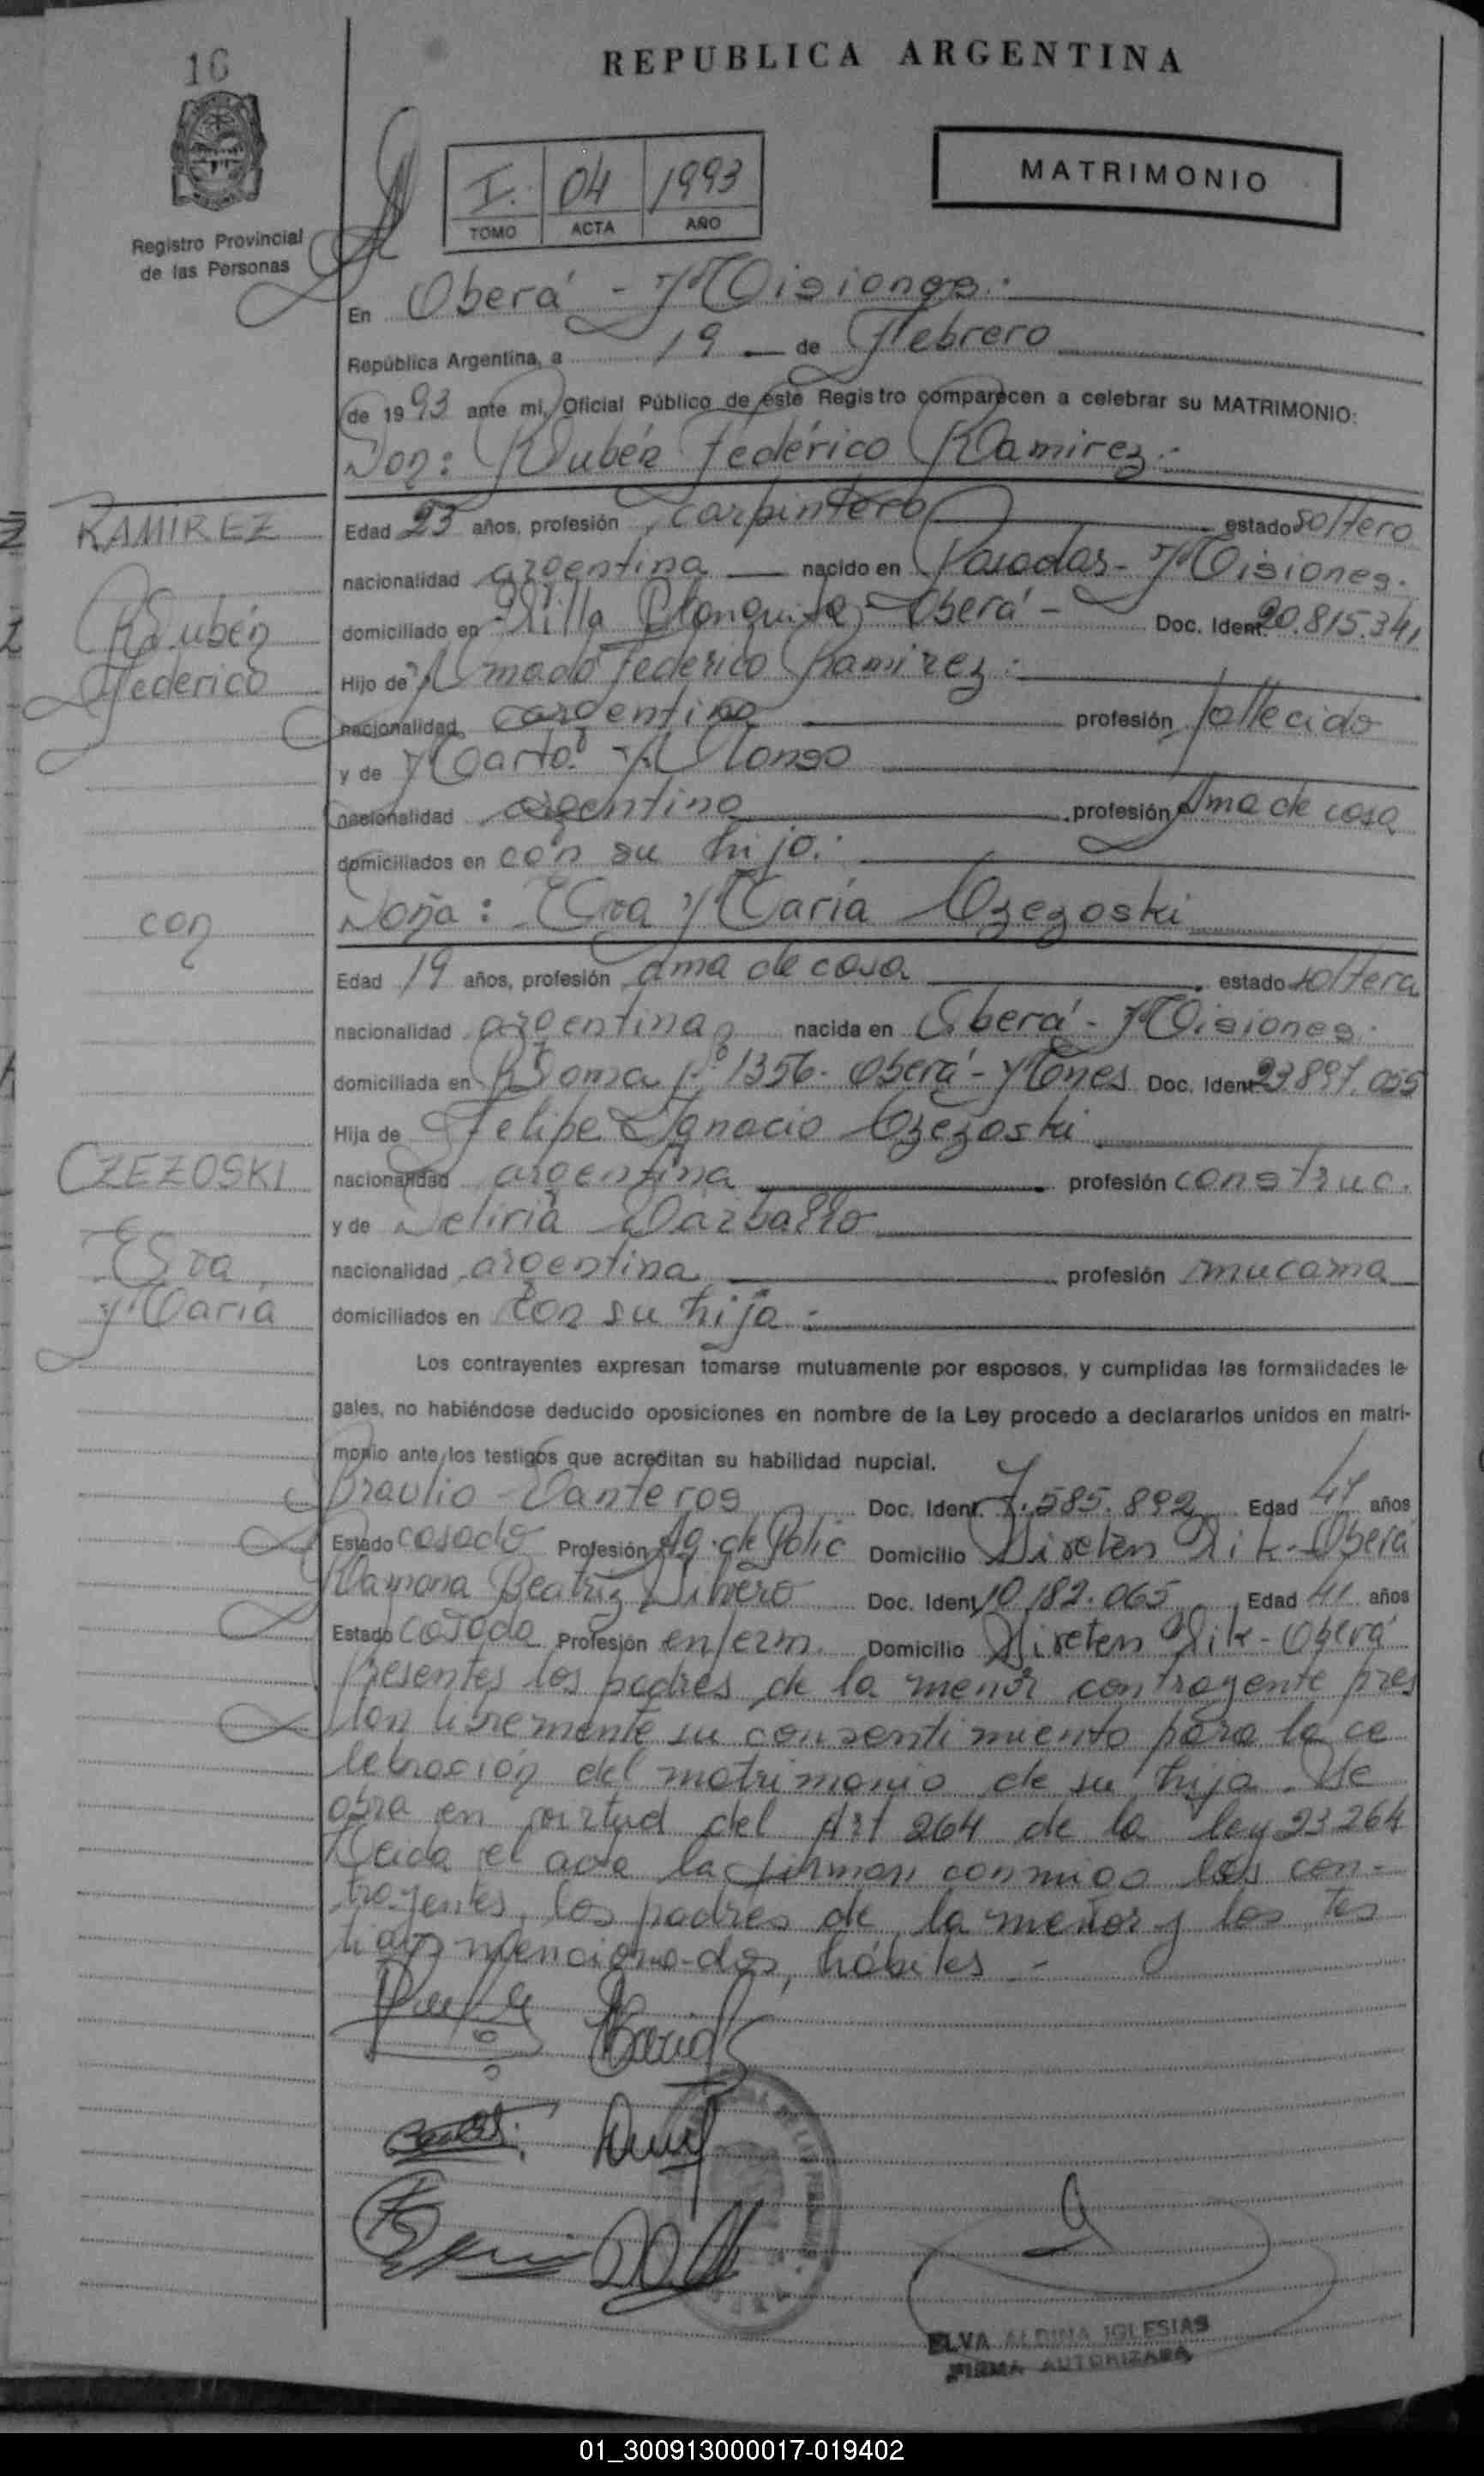 16
REPUBLICA ARGENTINA
I. 04 1993
TOMO ACTA AÑO
MATRIMONIO
Registro Provincial
de las Personas
En Oberá - Misiones.
República Argentina, a 19 de Febrero
de 1993 ante mi, Oficial Público de este Registro comparecen a celebrar su MATRIMONIO:
Don: Rubén Federico Ramirez.-
RAMIREZ
Rubén
Federico
Edad 23 años, profesión carpintero estado soltero
nacionalidad argentina nacido en Posadas - Misiones.
domiciliado en Villa Blanquita - Oberá - Doc. Ident. 20.815.341
Hijo de Amado Federico Ramirez.
nacionalidad argentina profesión fallecido
y de Marta Alonso
nacionalidad argentina profesión Ama de casa
domiciliados en con su hijo.
con
Doña: Eva María Czezoski
Edad 19 años, profesión ama de casa estado soltera
nacionalidad argentina nacida en Oberá - Misiones.
domiciliada en Roma Nº 1356. Oberá - Mnes Doc. Ident. 23.897.055
Hija de Felipe Ignacio Czezoski
CZEZOSKI
Eva
María
nacionalidad argentina profesión construc.
y de Deliria
nacionalidad argentina profesión mucama
domiciliados en con su hija.
Los contrayentes expresan tomarse mutuamente por esposos, y cumplidas las formalidades le-
gales, no habiéndose deducido oposiciones en nombre de la Ley procedo a declararlos unidos en matri-
monio ante los testigos que acreditan su habilidad nupcial.
Braulio Doc. Ident. 7.585.892 Edad 47 años
Estado casado Profesión Ag. de Polic Domicilio Oberá
Ramona Beatriz Doc. Ident. 10.182.065 Edad 41 años
Estado casada Profesión enferm. Domicilio Oberá
Presentes los padres de la menor contrayente pres
tan libremente su consentimiento para la ce
lebración del matrimonio de su hija. Se
obra en virtud del Art 264 de la ley 23264
Leida el acta la firman conmigo los con-
trayentes, los padres de la menor y los tes
tigos mencionados, hábiles -
ELVA ALDINA IGLESIAS
FIRMA AUTORIZADA
01_300913000017-019402